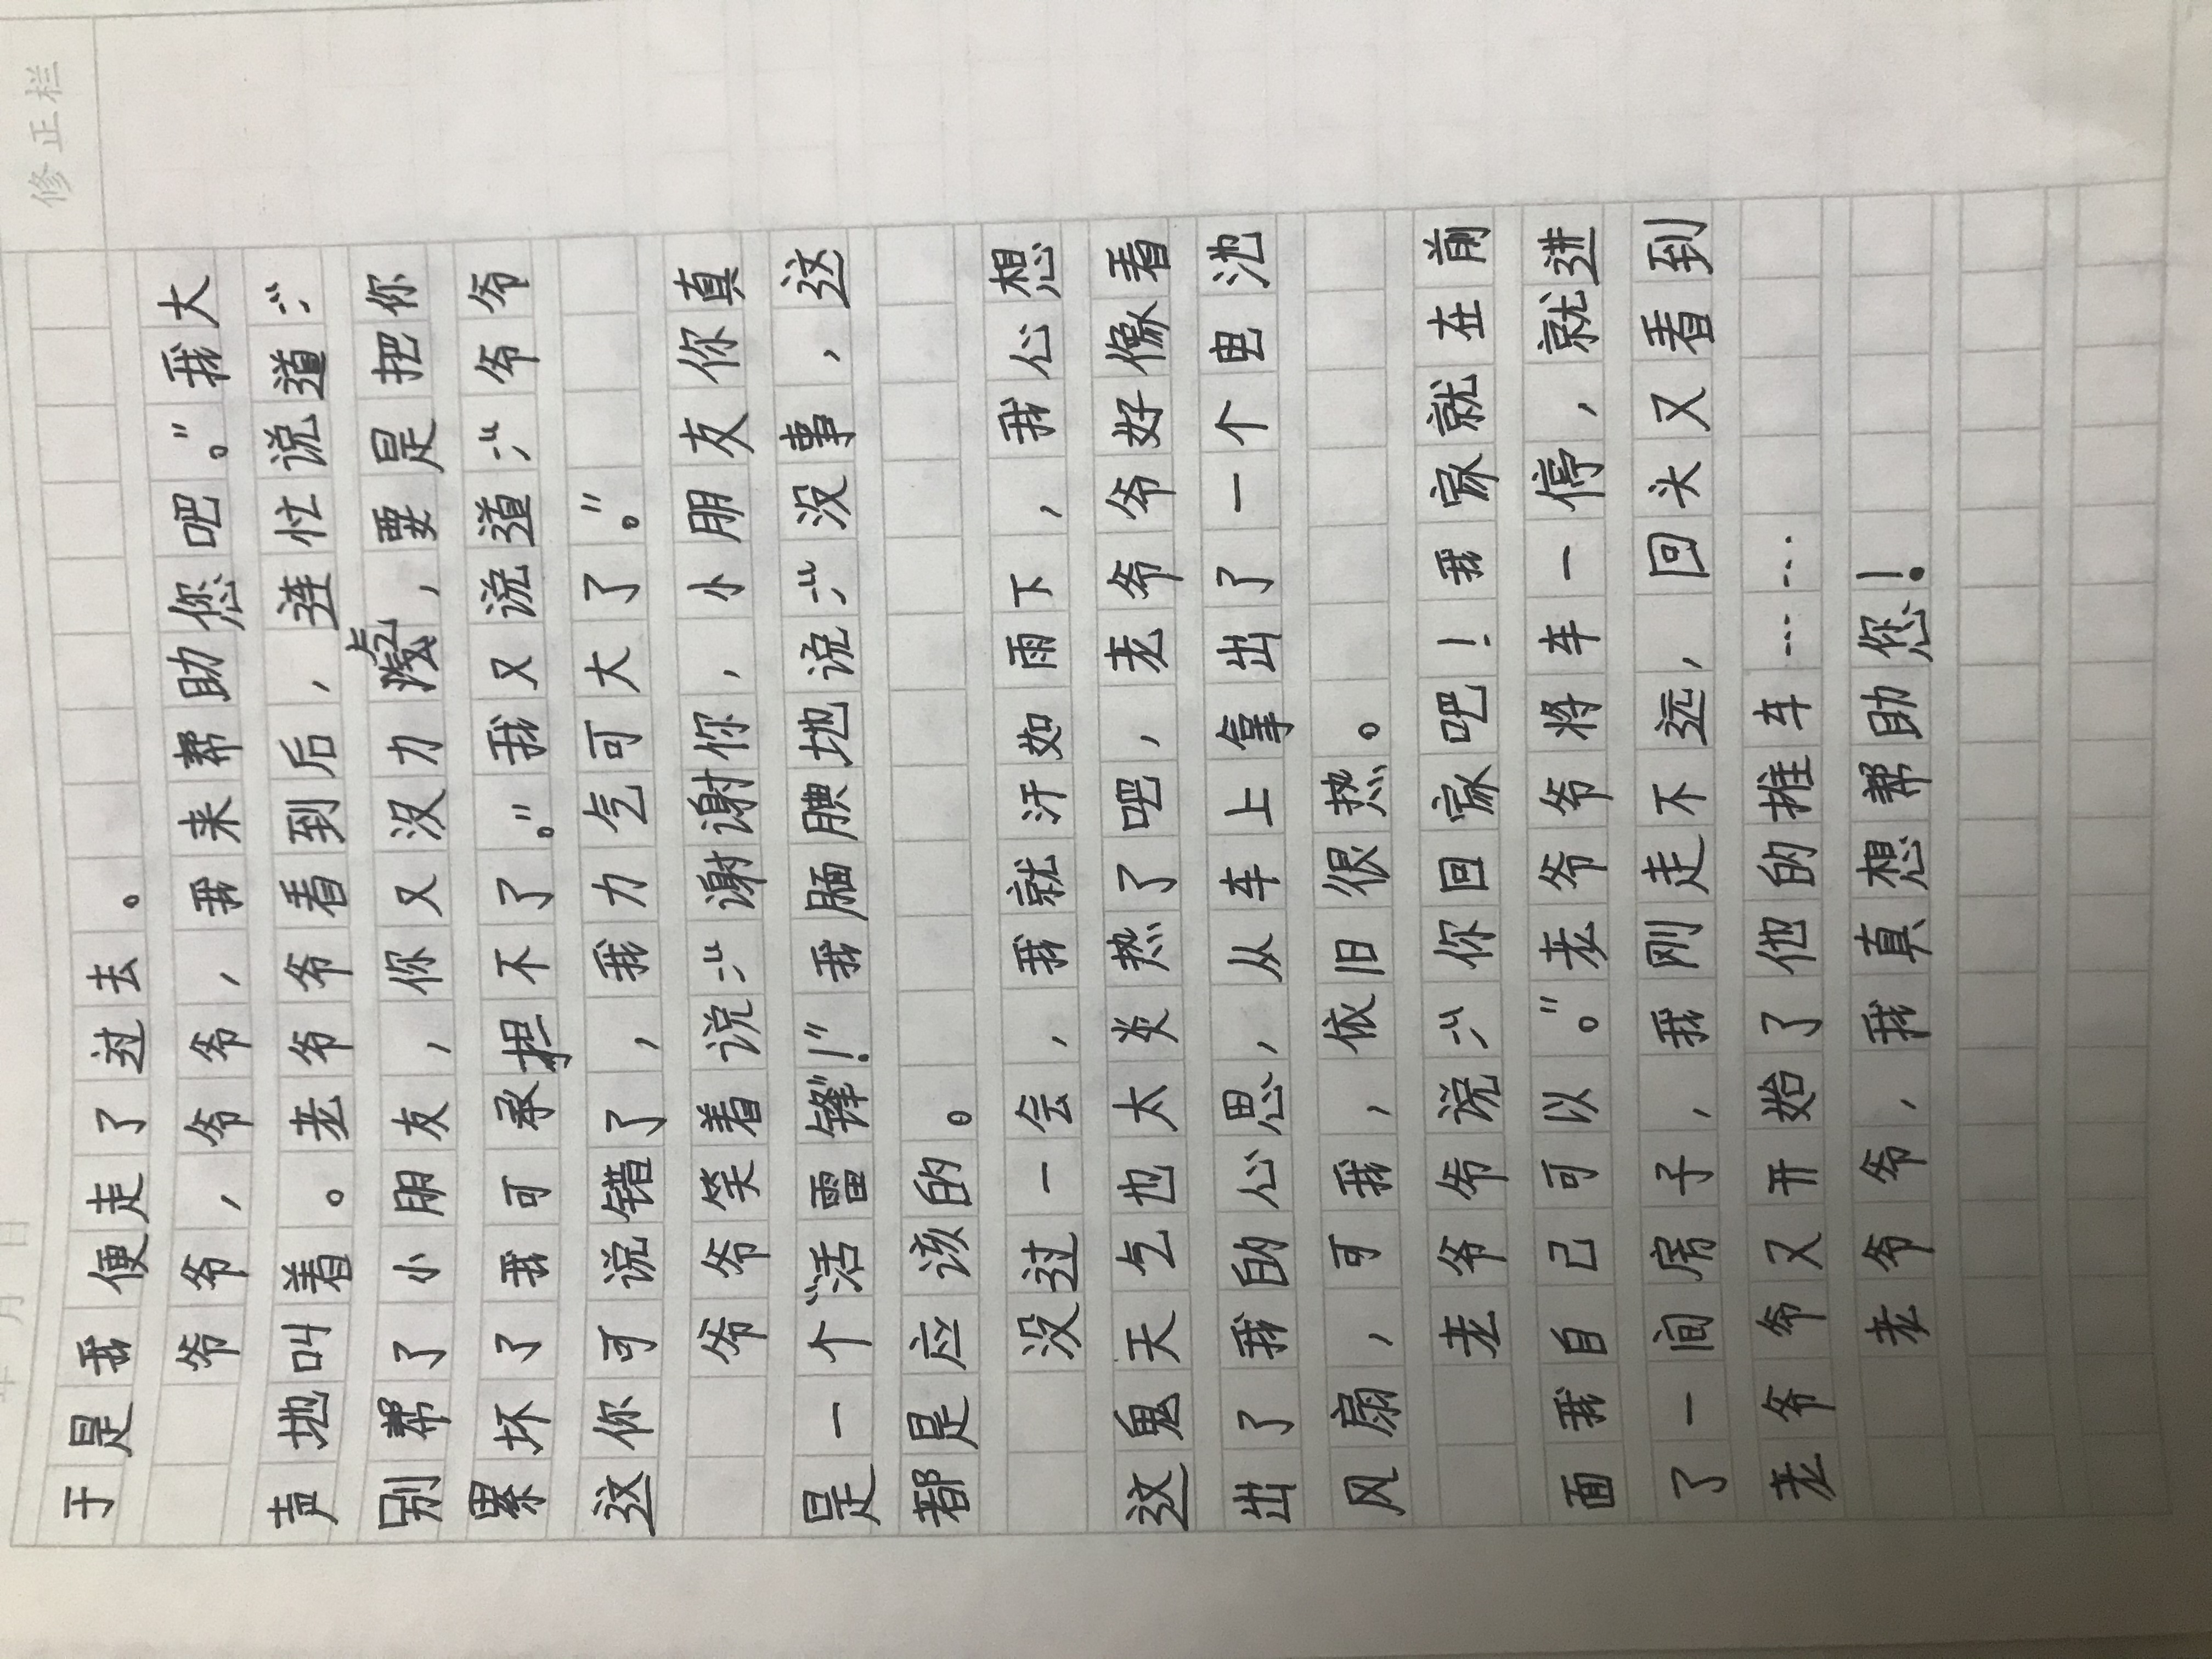 修正栏
年 月 日
于是我便走了过去。
爷爷，爷爷，我来帮助您吧。”我大
声地叫着。老爷爷看到后，连忙说道：“
别帮了小朋友，你又没力气，要是把你
累坏了我可承担不了。”我又说道：“爷爷
这你可说错了，我力气可大了。”
爷爷笑着说：“谢谢你，小朋友你真
是一个“活雷锋”！”我腼腆地说：“没事，这
都是应该的。
没过一会，我就汗如雨下，我心想
这鬼天气也太炎热了吧，老爷爷好像看
出了我的心思，从车上拿出了一个电池
风扇，可我，依旧很热。
老爷爷说：“你回家吧！我家就在前
面我自己可以。”老爷爷将车一停，就进
了一间房子，我刚走不远，回头又看到
老爷爷又开始了他的推车……
老爷爷，我真想帮助您！